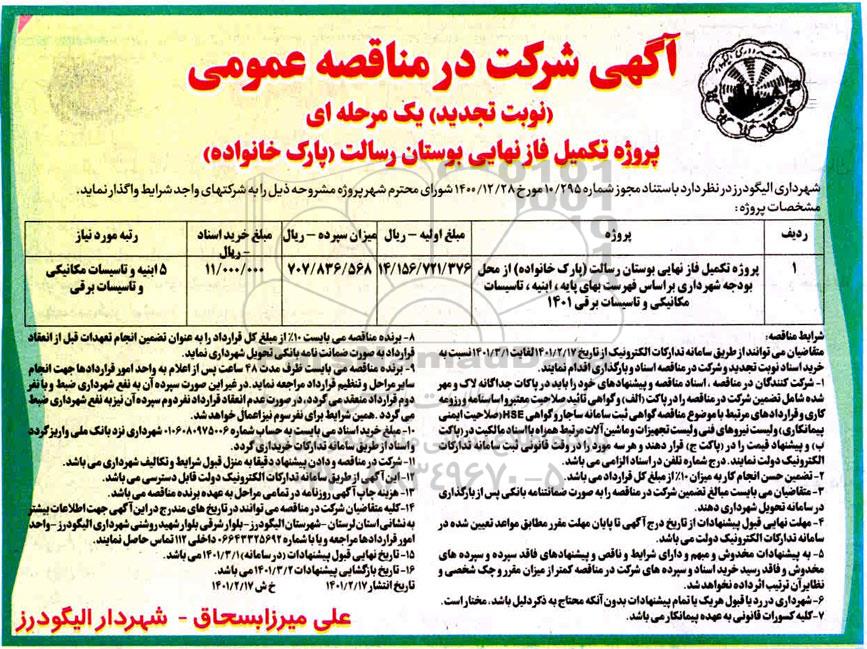 آگهی شرکت در مناقصه عمومی
(نوبت تجدید) یک مرحله ای
پروژه تکمیل فاز نهایی بوستان رسالت (پارک خانواده)
شهرداری الیگودرز در نظر دارد باستناد مجوز شماره ۱۰/۲۹۵ مورخ ۱۴۰۰/۱۲/۲۸ شورای محترم شهر پروژه مشروحه ذیل را به شرکتهای واجد شرایط واگذار نماید.
مشخصات پروژه :
ردیف پروژه مبلغ اولیه - ریال میزان سپرده - ریال مبلغ خرید اسناد - ریال رتبه مورد نیاز
۱ پروژه تکمیل فاز نهایی بوستان رسالت (پارک خانواده) از محل ۱۴/۱۵۶/۷۲۱/۳۷۶ ۷۰۷/۸۳۶/۵۶۸ ۱۱/۰۰۰/۰۰۰ ۵ ابنیه و تاسیسات مکانیکی
بودجه شهرداری بر اساس فهرست بهای پایه ، ابنیه ، تاسیسات و تاسیسات برقی
مکانیکی و تاسیسات برقی ۱۴۰۱
شرایط مناقصه:
متقاضیان می توانند از طریق سامانه تدارکات الکترونیک از تاریخ ۱۴۰۱/۲/۱۷ لغایت ۱۴۰۱/۳/۱ نسبت به
خرید اسناد نوبت تجدید و شرکت در مناقصه اسناد و بارگذاری اقدام نمایند.
۱- شرکت کنندگان در مناقصه ، اسناد مناقصه و پیشنهادهای خود را باید در پاکات جداگانه لاک و مهر
شده شامل تضمین شرکت در مناقصه را در پاکت (الف) و گواهی تائید صلاحیت معتبر و اساسنامه و رزومه
کاری و قراردادهای مرتبط با موضوع مناقصه گواهی ثبت سامانه ساجار و گواهی HSE (صلاحیت ایمنی
پیمانکاری) ولیست نیروهای فنی ولیست تجهیزات و ماشین آلات مرتبط همراه با اسناد مالکیت در (پاکت
ب) و پیشنهاد قیمت را در (پاکت ج) قرار دهند و هر سه مورد را در وقت قانونی ثبت سامانه تدارکات
الکترونیک دولت نمایند . درج شماره تلفن در اسناد الزامی می باشد.
۲- تضمین حسن انجام کار به میزان ۱۰٪ از مبلغ کل قرارداد می باشد.
۳- متقاضیان می بایست مبالغ تضمین شرکت در مناقصه را به صورت ضمانتنامه بانکی پس از بارگذاری
در سامانه تحویل شهرداری دهند.
۴- مهلت نهایی قبول پیشنهادات از تاریخ درج آگهی تا پایان مهلت مقرر مطابق مواعد تعیین شده در
سامانه تدارکات الکترونیک دولت می باشد.
۵- به پیشنهادات مخدوش و مبهم و دارای شرایط و ناقص و پیشنهادهای فاقد سپرده و سپرده های
مخدوش و فاقد رسید خرید اسناد و سپرده های شرکت در مناقصه کمتر از میزان مقرر و چک شخصی و
نظایر آن ترتیب اثر داده نخواهد شد.
۶- شهرداری در رد یا قبول هر یک یا تمام پیشنهادات بدون آنکه محتاج به ذکر دلیل باشد ، مختار است.
۷- کلیه کسورات قانونی به عهده پیمانکار می باشد.
۸- برنده مناقصه می بایست ۱۰٪ از مبلغ کل قرارداد را به عنوان تضمین انجام تعهدات قبل از انعقاد
قرارداد به صورت ضمانت نامه بانکی تحویل شهرداری نماید.
۹- برنده مناقصه می بایست ظرف مدت ۴۸ ساعت پس از اعلام به واحد امور قراردادها جهت انجام
سایر مراحل و تنظیم قرارداد مراجعه نماید . در غیر این صورت سپرده آن به نفع شهرداری ضبط و با نفر
دوم قرارداد منعقد می گردد ، در صورت عدم انعقاد قرارداد نفر دوم سپرده آن نیز به نفع شهرداری ضبط
می گردد . همین شرایط برای نفر سوم نیز اعمال خواهد شد.
۱۰- مبلغ خرید اسناد می بایست به حساب شماره ۰۱۰۶۰۸۰۹۷۵۰۰۶ شهرداری نزد بانک ملی واریز گردد
و اسناد از طریق سامانه تدارکات خریداری گردد.
۱۱- شرکت در مناقصه و دادن پیشنهاد دقیقا به منزل قبول شرایط و تکالیف شهرداری می باشد.
۱۲- این آگهی از طریق سامانه تدارکات الکترونیک دولت قابل دسترسی می باشد.
۱۳- هزینه چاپ آگهی روزنامه در تمامی مراحل به عهده برنده مناقصه می باشد.
۱۴- کلیه متقاضیان شرکت در مناقصه می توانند در تاریخ های مندرج در این آگهی جهت اطلاعات بیشتر
به نشانی استان لرستان - شهرستان الیگودرز - بلوار شرقی بلوار شهید روشنی شهرداری الیگودرز - واحد
امور قراردادها مراجعه و یا با شماره ۰۶۶۴۳۳۲۵۶۹۲ داخلی ۱۱۲ تماس حاصل نمایند.
۱۵- تاریخ نهایی قبول پیشنهادات (در سامانه) ۱۴۰۱/۳/۱ می باشد.
۱۶- تاریخ بازگشایی پیشنهادات ۱۴۰۱/۳/۲ می باشد.
تاریخ انتشار ۱۴۰۱/۲/۱۷ خ ش ۱۴۰۱/۲/۱۷
علی میرزابسحاق - شهردار الیگودرز